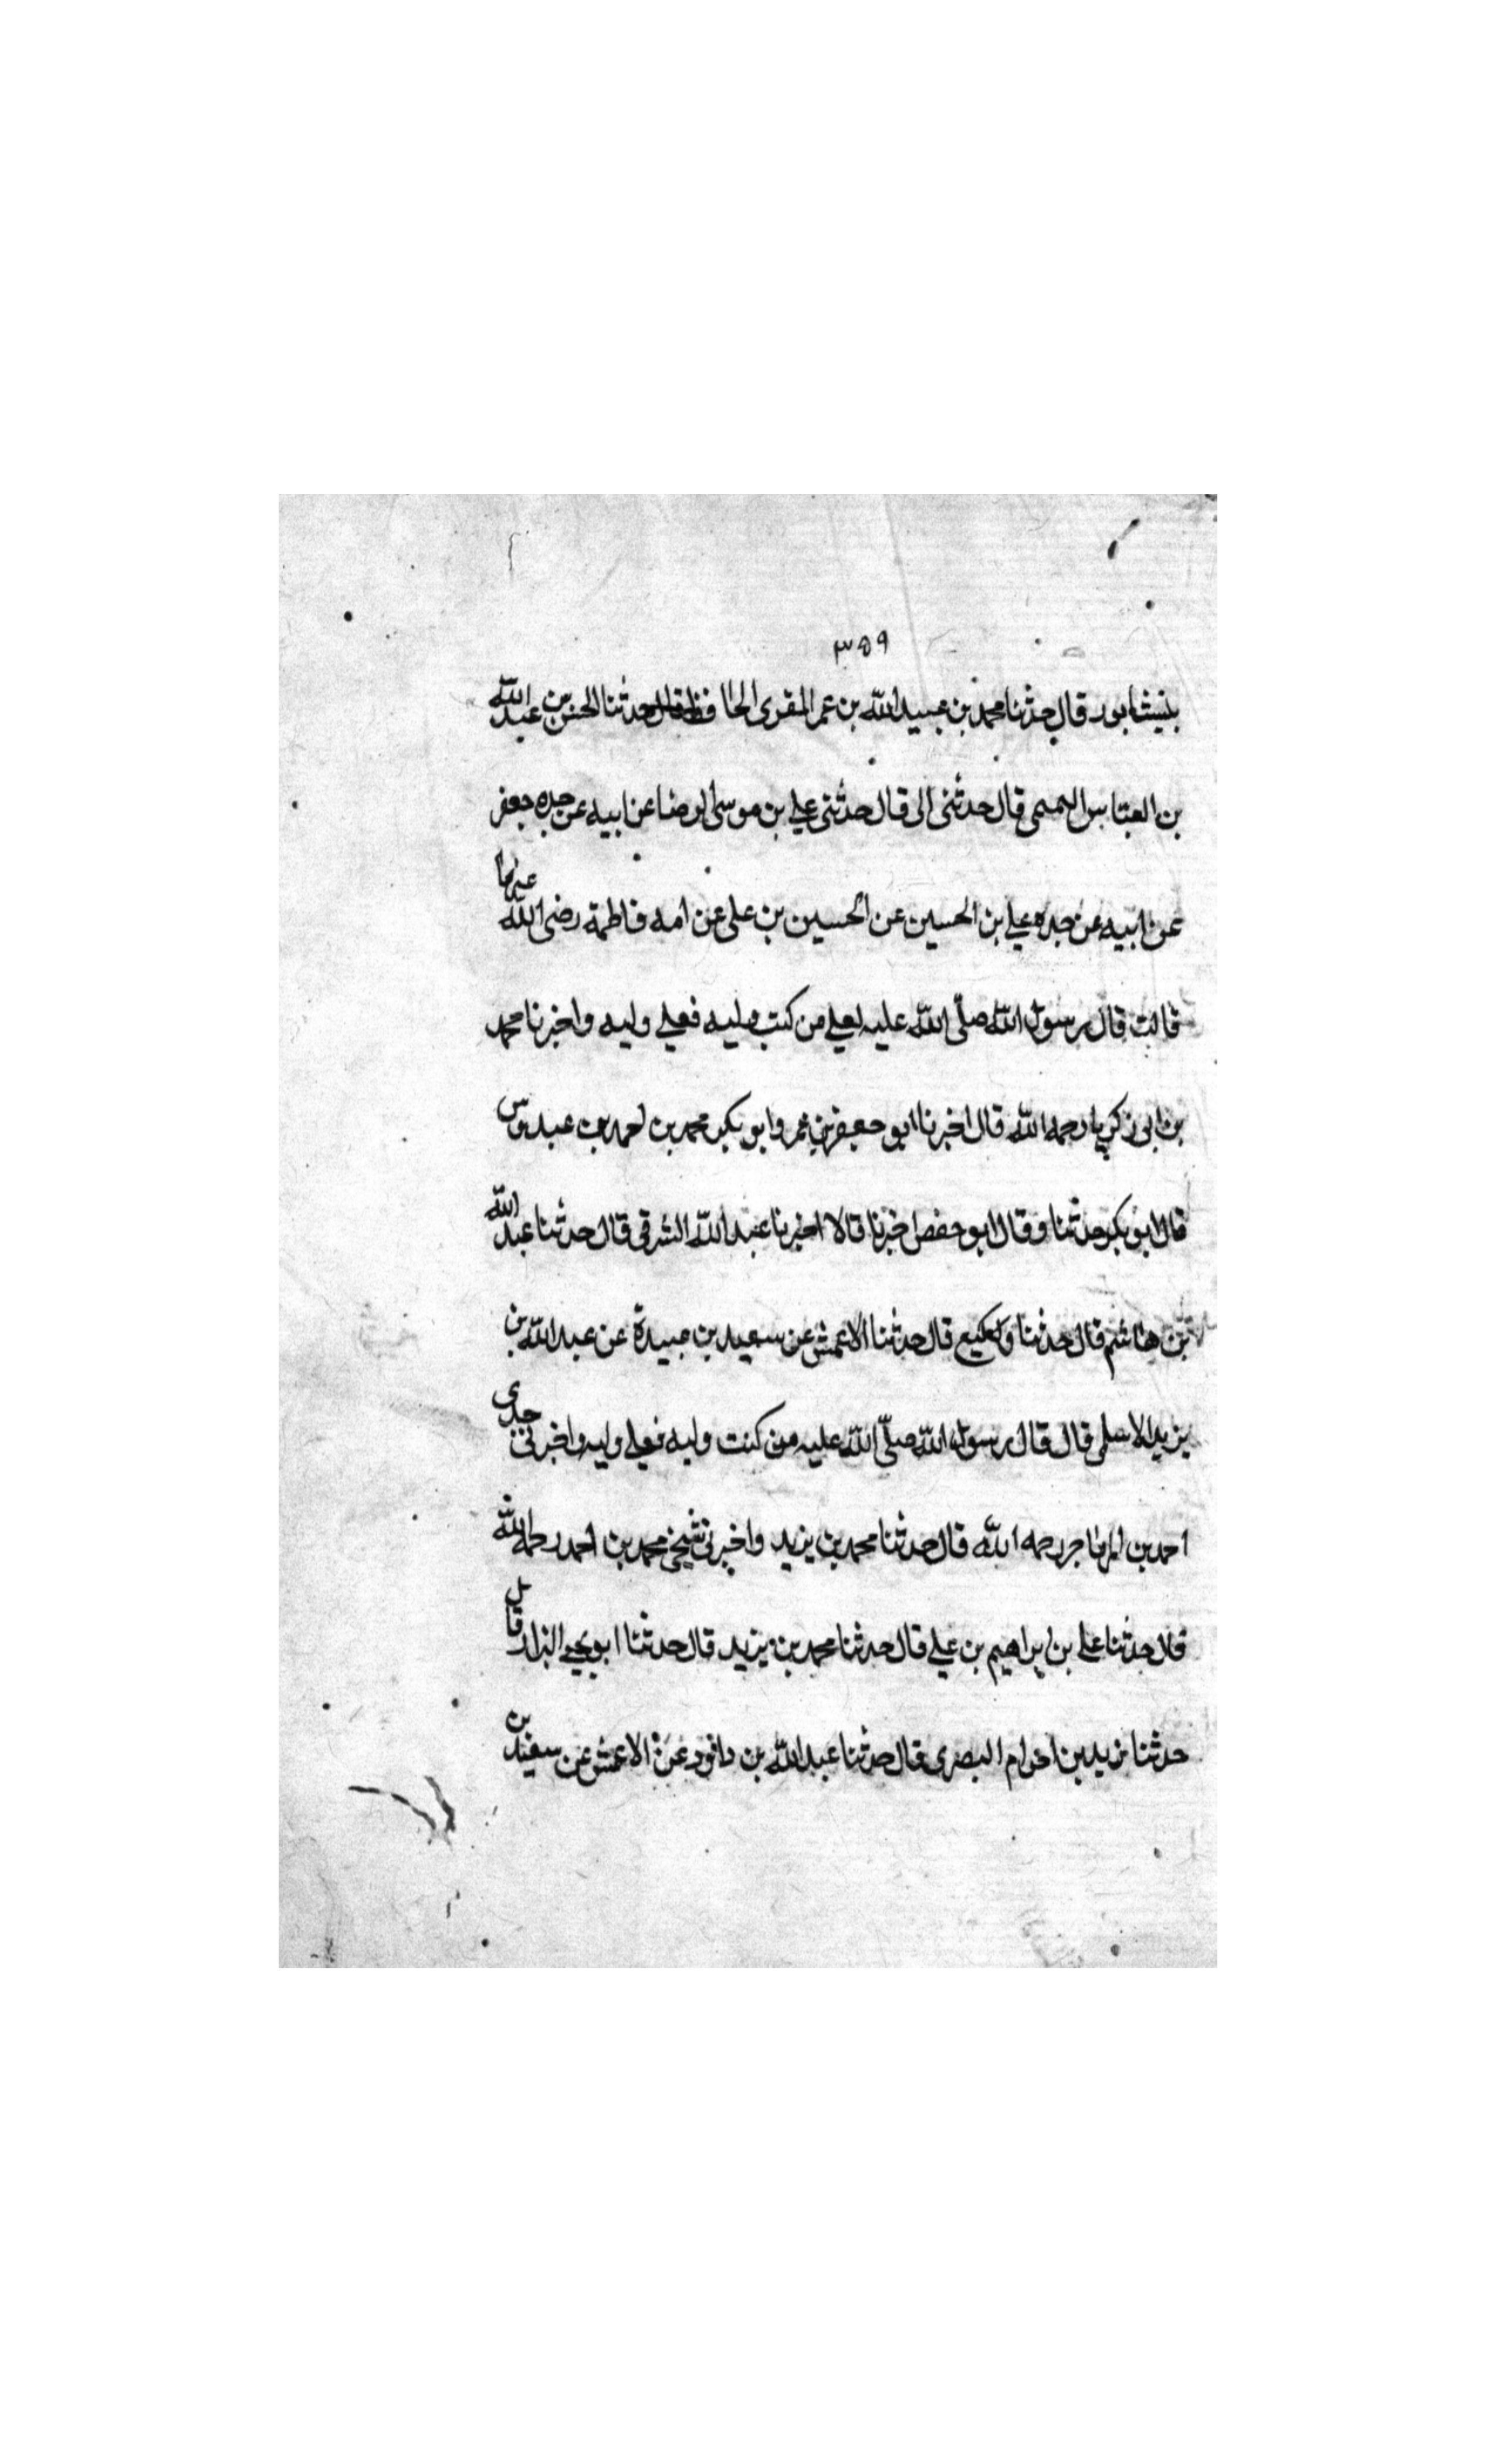 ٣٥٩
بنيشابور قال حدثنا محمد بن عبيد الله بن عمر المقرى الحافظ قال حدثنا الحسن بن عبد الله
بن العباس التميمى قال حدثنى ابى قال حدثنى على بن موسى الرضا عن ابيه عن جده جعفر
عن ابيه عن جده على بن الحسين عن الحسين بن على عن امه فاطمة رضى الله عنها
قالت قال رسول الله صلّى الله عليه لعلى من كنت وليه فعلى وليه واخبرنا محمد
بن ابى زكريا رحمه الله قال اخبرنا ابو بن عمر وابو بكر محمد بن احمد بن عبدوس
قال ابو بكر حدثنا وقال ابو حفص اخبرنا قالا اخبرنا عبد الله الشرقى قال حدثنا عبد الله
بن هاشم قال حدثنا وكيع قال حدثنا الاعمش عن سعيد بن عبيدة عن عبد الله بن
يزيد الاسلمى قال قال رسول الله صلّى الله عليه من كنت وليه فعلى وليه واخبرنى جدى
احمد بن المهاجر رحمه الله قال حدثنا محمد بن يزيد واخبرنى شيخى محمد بن احمد رحمه الله
قال حدثنا على بن ابراهيم بن على قال حدثنا محمد بن يزيد قال حدثنا ابو يحيى البزار قال
حدثنا زيد بن اخزام البصرى قال حدثنا عبد الله بن داود عن الاعمش عن بن